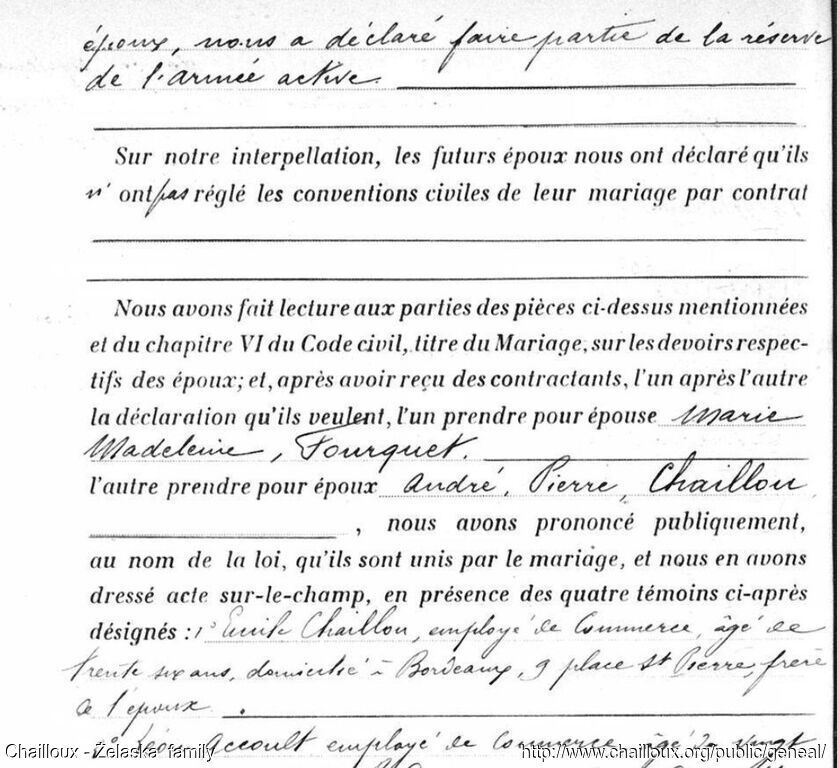 époux, nous a déclaré faire partie de la réserve
de l'armée active.
Sur notre interpellation, les futurs époux nous ont déclaré qu'ils
n' ont pas réglé les conventions civiles de leur mariage par contrat
Nous avons fait lecture aux parties des pièces ci-dessus mentionnées
et du chapitre VI du Code civil, titre du Mariage, sur les devoirs respec-
tifs des époux; et, après avoir reçu des contractants, l'un après l'autre
la déclaration qu'ils veulent, l'un prendre pour épouse Marie
Madeleine, Fourquet.
l'autre prendre pour époux André, Pierre, Chaillou
, nous avons prononcé publiquement,
au nom de la loi, qu'ils sont unis par le mariage, et nous en avons
dressé acte sur-le-champ, en présence des quatre témoins ci-après
désignés : 1° Emile Chaillou, employé de Commerce, âgé de
trente six ans, domicilié à Bordeaux, 9 place St Pierre, frère
de l'époux.
2° Léon Accoult employé de commerce âgé de vingt
Chailloux - Żelaska family
http://www.chailloux.org/public/geneal/